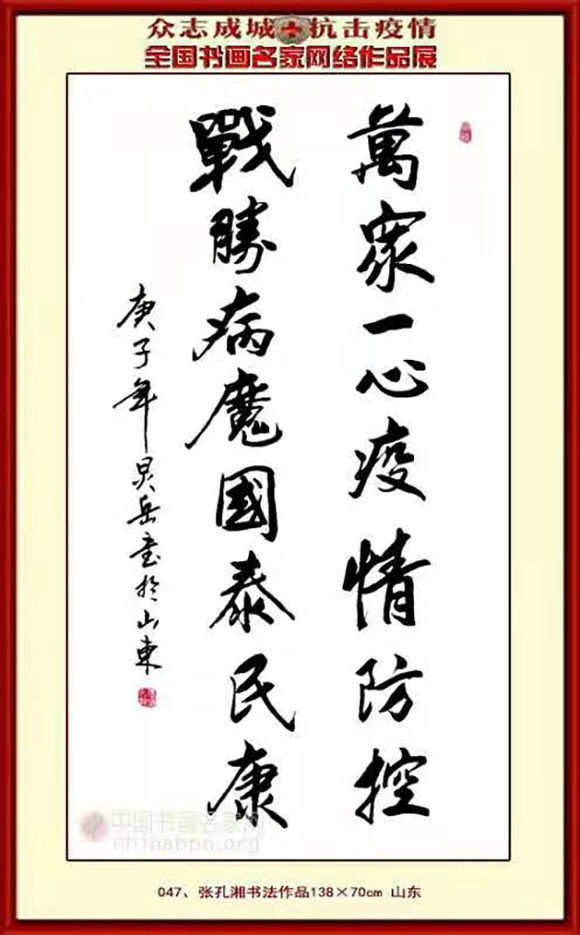 众志成城 抗击疫情
全国书画名家网络作品展
萬眾一心疫情防控
戰勝病魔國泰民康
庚子年炅岳書於山東
中国书画名家网
chinabpn.org
047、张孔湘书法作品138×70cm 山东